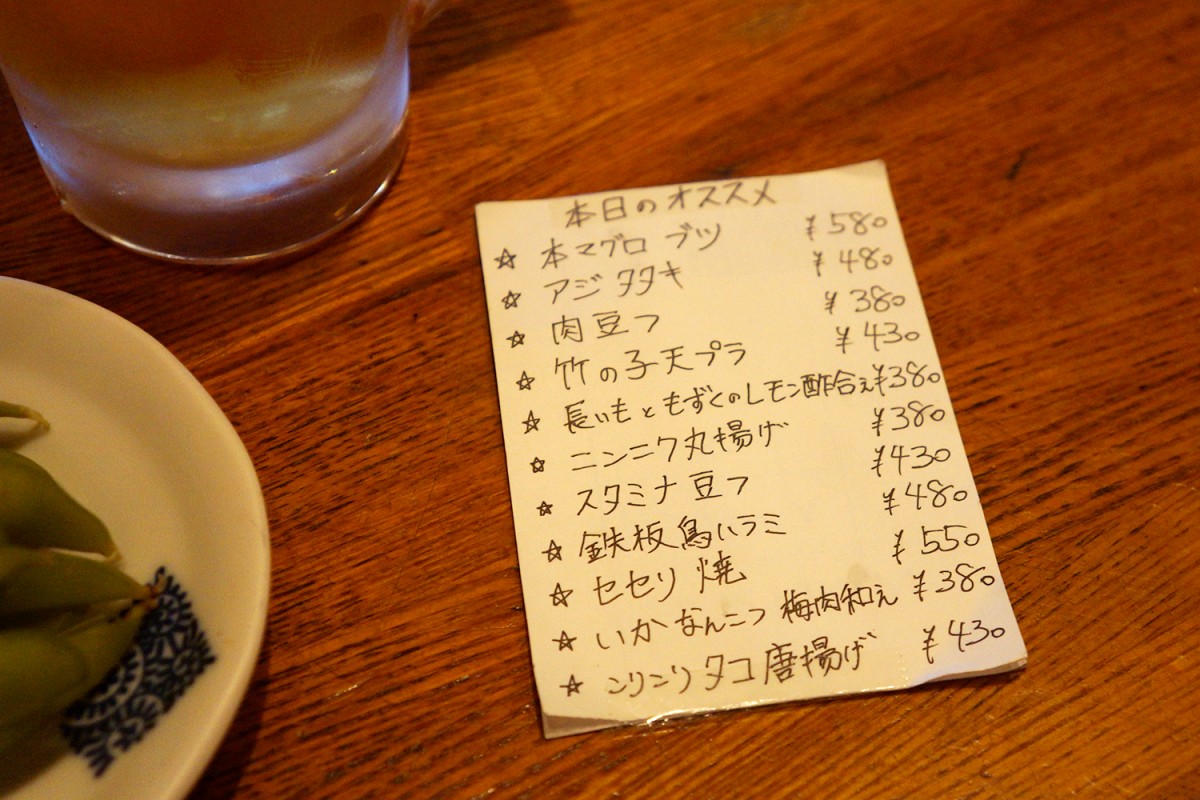 本日のオススメ
☆ 本マグロ ブツ ¥580
☆ アジ タタキ ¥480
☆ 肉豆フ ¥380
☆ 竹の子天プラ ¥430
☆ 長いもともずくのレモン酢合え ¥380
☆ ニンニク丸揚げ ¥380
☆ スタミナ豆フ ¥430
☆ 鉄板鳥ハラミ ¥480
☆ セセリ焼 ¥550
☆ いかなんこつ 梅肉和え ¥380
☆ コリコリタコ唐揚げ ¥430